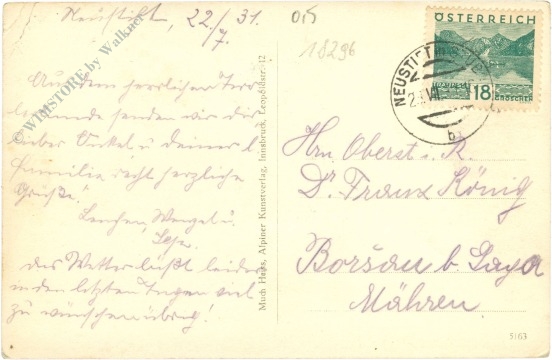 Neustift, 22/7. 31.
Aus dem herrlichen Tiro
lerlande senden wir dir
lieber Onkel u. deiner l.
Familie recht herzliche
Grüße!
Lenchen, Wenzel u.
Das Wetter läßt leider
in den letzten Tagen viel
zu wünschen übrig!
© WIMSTORE by Walkner
Much Heiss, Alpiner Kunstverlag, Innsbruck, Leopoldstr. 12
18296
ÖSTERREICH
18
GROSCHEN
NEUSTIFT
b
Hrn Oberst i. R.
Dr. Franz König
Boršau b. Gaya
Mähren
5163